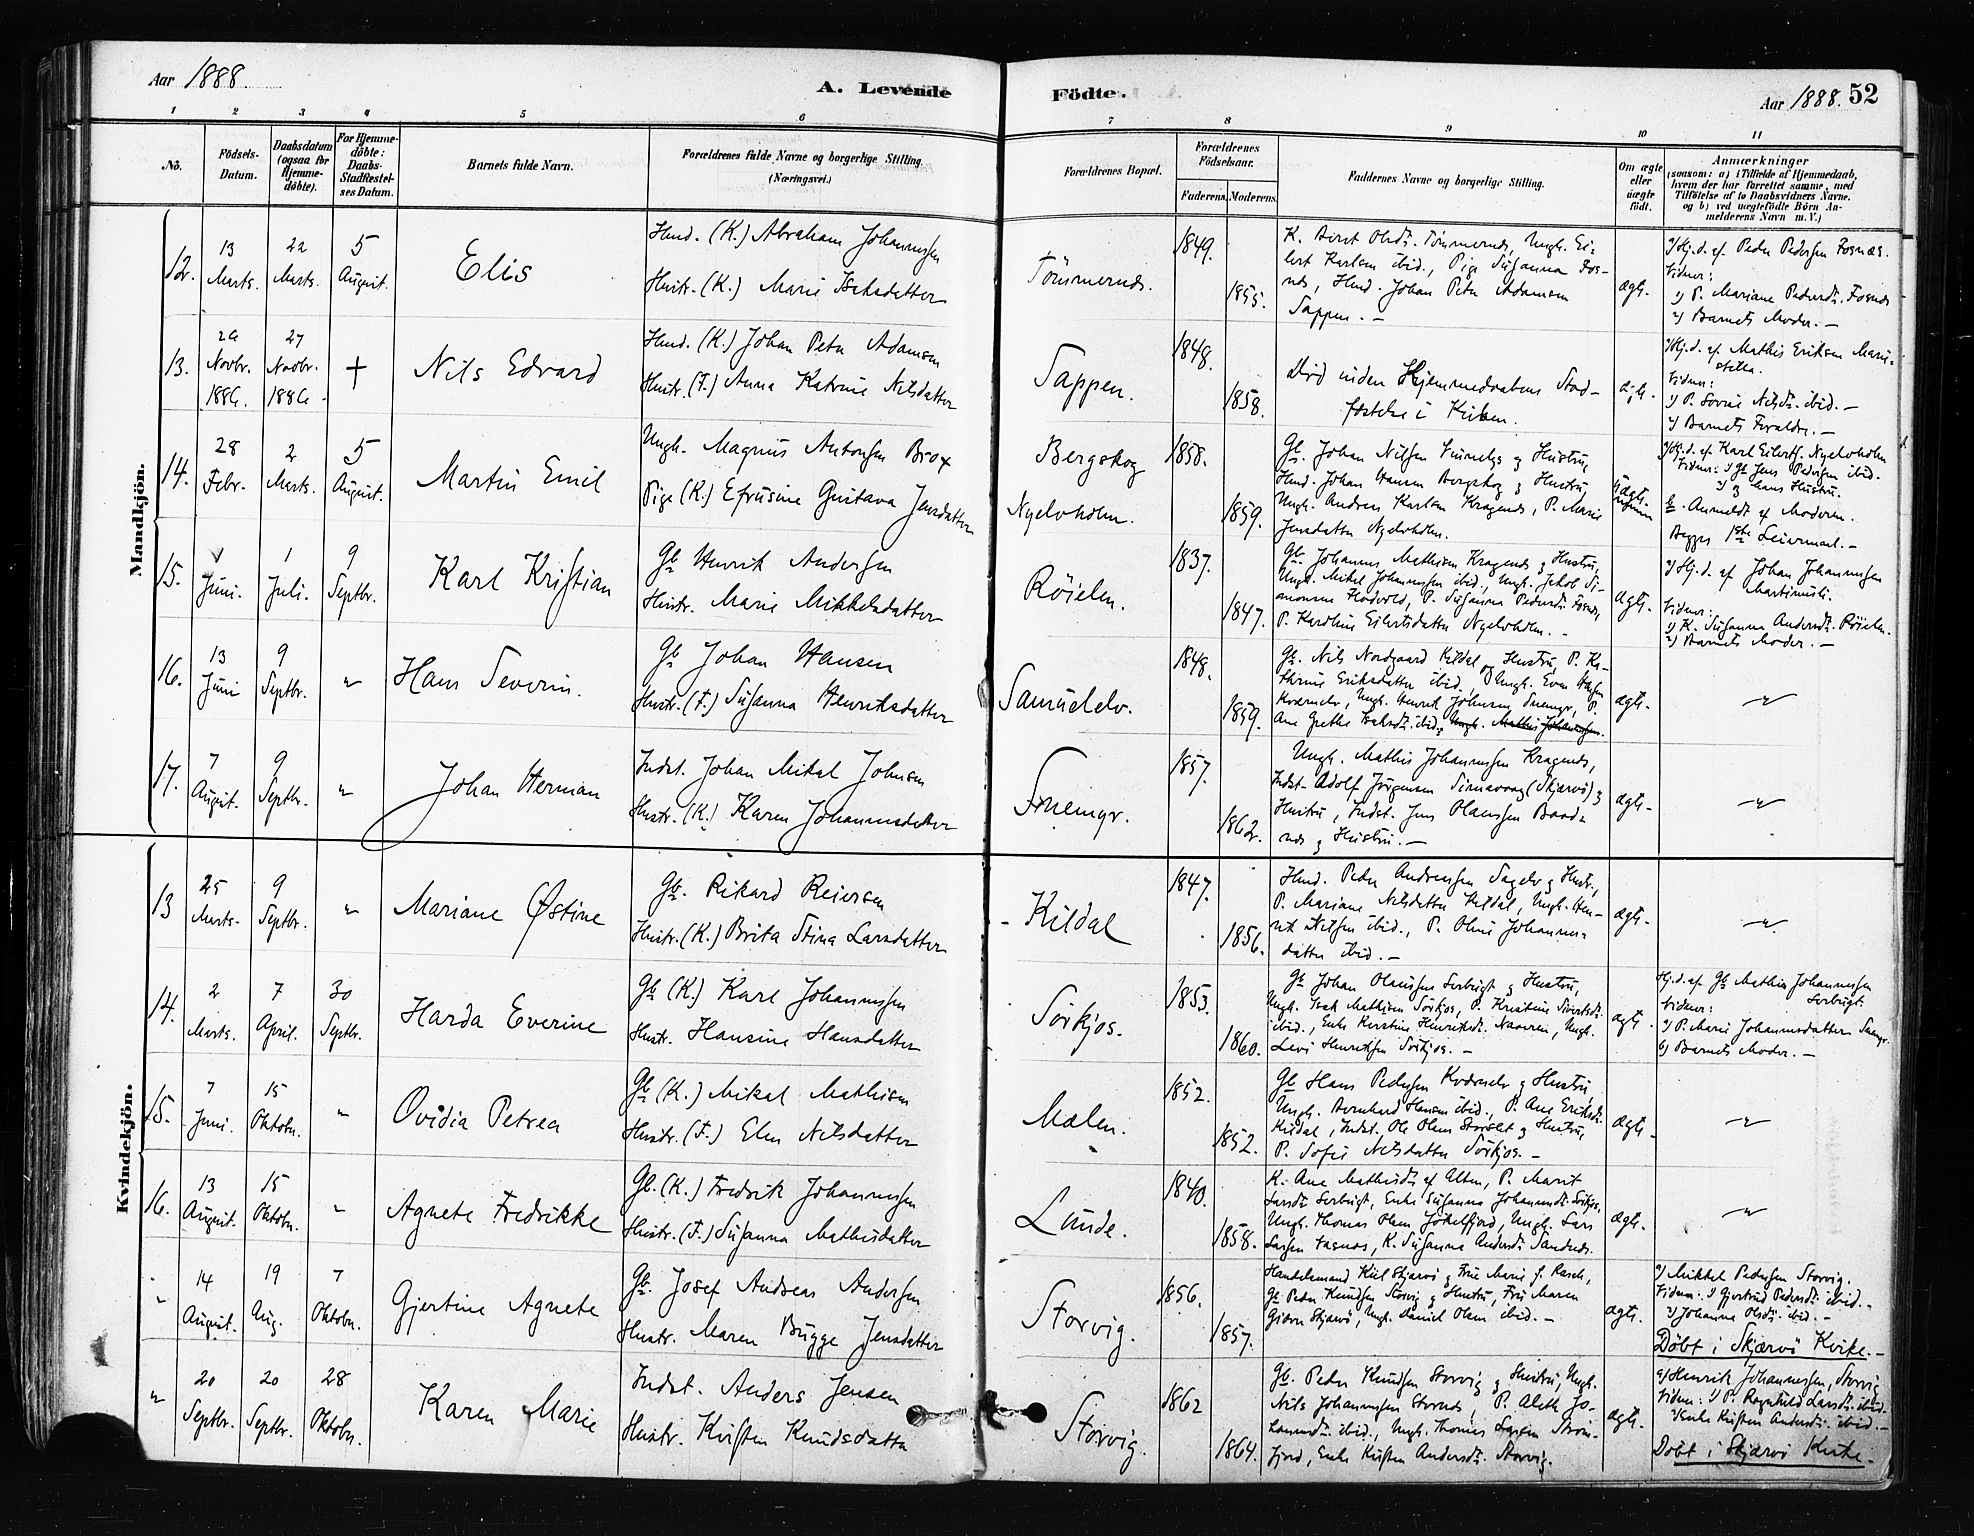 Aar 1888.
A. Levende
Födte.
Aar 1888. 52
1 2 3 4 5 6 7 8 9 10 11
No.
Födsels-Datum.
Daabsdatum (ogsaa for Hjemme-döbte).
For Hjemme-döbte: Daabs-Stadfæstel-ses Datum.
Barnets fulde Navn.
Forældrenes fulde Navne og borgerlige Stilling. (Næringsvei.)
Forældrenes Bopæl.
Forældrenes Födselsaar.
Faderens. Moderens.
Faddernes Navne og borgerlige Stilling.
Om ægte eller uægte födt.
Anmærkninger
(saasom: a) i Tilfælde af Hjemmedaab,
hvem der har forrettet samme, med
Tilföielse af to Daabsvidners Navne.
og b) ved uægtefödte Börn An-
melderens Navn m. V.)
Mandkjön.
12. 13 Marts. 22 Marts. 5 August. Elis
Hmd. (K.) Abraham Johannessen
Hustr. (K.) Marie Isaksdatter
Tömmernes. 1849. 1855.
Ungk. Ei-
lert Karlsen ibid., Pige Susanna Fos-
nes, Hmd. Johan Peter Adamsen
Sappen. —
ægte.
a) Hj.d. af Peder Pedersen Fosnæs.
Vidner:
1) P. Mariane Pedersdt. Fosnes
2) Barnets Moder. —
13. 26 Novbr. 1886. 27 Novbr. 1886. + Nils Edvard
Hmd. (K.) Johan Peter Adamsen
Hustr. (F.) Anna Katrine Nilsdatter
Sappen. 1848. 1858.
Död inden Hjemmedaabens Stad-
fæstelse i Kirken.
ægte.
a) Hj.d. af Mathis Eriksen
Vidner:
1) P. Sovie Nilsdt. ibid. —
2) Barnets Forældre. —
14. 28 Febr. 2 Marts. 5 August. Martin Emil
Ungk. Magnus Antonsen Brox
Pige (K.) Efrusine Gustava Jensdatter
Bergskog 1858.
Nyelvholm. 1859.
Gb. Johan Nilsen og Hustru,
Hmd. Johan Hansen Bergskog og Hustru
Ungk. Andreas Karlsen Kragenes, P. Marie
Jensdatter Nyelvholm.
Uægte
a) Hj.d. af Karl Eilerts. Nyelvholm
Vidner: 1) Gb. Jens Pedersen ibid.
2) og hans Hustru.
b. Anmeldt af Moderen.
Begges 1ste Leiermaal. —
15. Juni. 1 Juli. 9 Septbr. Karl Kristian
Gb. Henrik Andersen
Hustr. Marie Mikkelsdatter
Röielen. 1837. 1847.
Gb. Johannes Mathisen Kragenes og Hustru,
Ungk. Mikal Johannessen ibid., Ungk. Jakob Si-
monsen Hodvold, P. Susanna Pedersdt. Fosnes,
P. Karoline Eilertsdatter Nyelvholm. —
ægte.
a) Hj.d. af Johan Johannessen
Vidner:
1) K. Susanna Andersdt. Röielen.
2) Barnets Moder. —
16. 13 Juni 9 Septbr. " Hans Severin.
Gb. Johan Hansen
Hustr. (F.) Susanna Henriksdatter
Samuelelv. 1848. 1859.
Gb. Nils Nordgaard Kildal og Hustru, P. Ka-
thrine Eriksdatter ibid., Ungk. Even Hansen
Kvænelv, Ungk. Henrik Johnsen Snemyr, P.
Ane Grethe Isaksdt. ibid., Ungk. Mathis Johannessen.
ægte. "
17. 7 August. 9 Septbr. " Johan Herman
Indst. Johan Mikal Johnsen
Hustr. (K.) Karen Johannesdatter
Snemyr. 1857. 1862.
Ungk. Mathis Johannessen Kragenes,
Indst. Adolf Jörgensen Simavaag (Skjærvö) og
Hustru, Indst. Jens Olaussen Baad-
nes og Hustru. —
ægte. "
Kvindekjön.
13 25 Marts. 9 Septbr. " Mariane Østine
Gb. Rikard Reiersen
Hustr. (K.) Brita Stina Larsdatter
Kildal 1847. 1856.
Hmd. Peder Andreassen Sagelv og Hustr.,
P. Mariane Nilsdatter Kildal, Ungk. Hen-
rik Nilsen ibid., P. Oline Johannes-
datter ibid. —
ægte. "
14. 2 Marts. 7 April. 30 Septbr. Harda Everine
Gb. (K.) Karl Johannessen
Hustr. Hansine Hansdatter
Sörkjos. 1853. 1860.
Gb. Johan Olaussen Sorbugt og Hustru,
Ungk. Isak Mathisen Sörkjos, P. Kristine Sivertsdt.
ibid., Enke Kerstine Henriksdt. Naveren, Ungk.
Levi Henriksen Sörkjos. —
ægte.
Hj.d. af Gb. Mathis Johannessen
Sorbugt.
Vidner:
a) P. Marie Johannesdatter Snemyr.
b) Barnets Moder. —
15. 7 Juni. 15 Oktober. " Ovidia Petrea
Gb. (K.) Mikal Mathisen
Hustr. (F.) Elen Nilsdatter
Mælen. 1852. 1852.
Gb. Hans Pedersen Kvænelv og Hustru,
Ungk. Bernhard Hansen ibid., P. Ane Eriksdt.
Kildal, Indst. Ole Olsen Storslet og Hustru,
P. Sofie Nilsdatter Sörkjos. —
ægte. "
16. 13 August. 15 Oktober. " Agnete Fredrikke
Gb. (K.) Fredrik Johannessen
Hustr. (F.) Susanna Mathisdatter
Lunde. 1840. 1858.
K. Ane Mathisdt. af Alten, P. Marit
Larsdt. Sorbugt, Enke Susanna Johannesdt. Sörkjos,
Ungk. Thomas Olsen Jökelfjord, Ungk. Lars
Larsen, K. Susanna Andersdt. Sandnes.
ægte. "
" 14 August. 19 Aug. 7 Oktober. Gjertine Agnete
Gb. Josef Andreas Andersen
Hustr. Maren Brygge Jensdatter
Storvig. 1856. 1857.
Handelsmand Kiel Skjærvö og Frue Marie f. Rasch,
Gb. Peder Knudsen Storvig og Hustru, Fru Maren
Giæver Skjærvö, Ungk. Daniel Olsen ibid. —
ægte.
a) Mikkel Pedersen Storvig.
Vidner: 1) Gjertrud Pedersdt. ibid. —
2) Johanna Olsdt. ibid. —
Döbt i Skjærvö Kirke. —
" 20 Septbr. 20 Septbr. 28 Oktober. Karen Marie
Indst. Anders Jensen
Hustr. Kirsten Knudsdatter
Storvig. 1862 1864.
Gb. Peder Knudsen Storvig og Hustru, Ungk.
Nils Johannessen Stornes, P. Aleth Jo-
hannesdt. ibid., Ungk. Thomas Larsen Ström-
fjord, Enke Kirsten Andersdt. Storvig.
ægte.
a) Henrik Johannessen, Storvig
Vidner: 1) P. Ragnhild Larsdt. ibid.
2) Enke Kirsten Andersdt. ibid. —
Döbt i Skjærvö Kirke. —